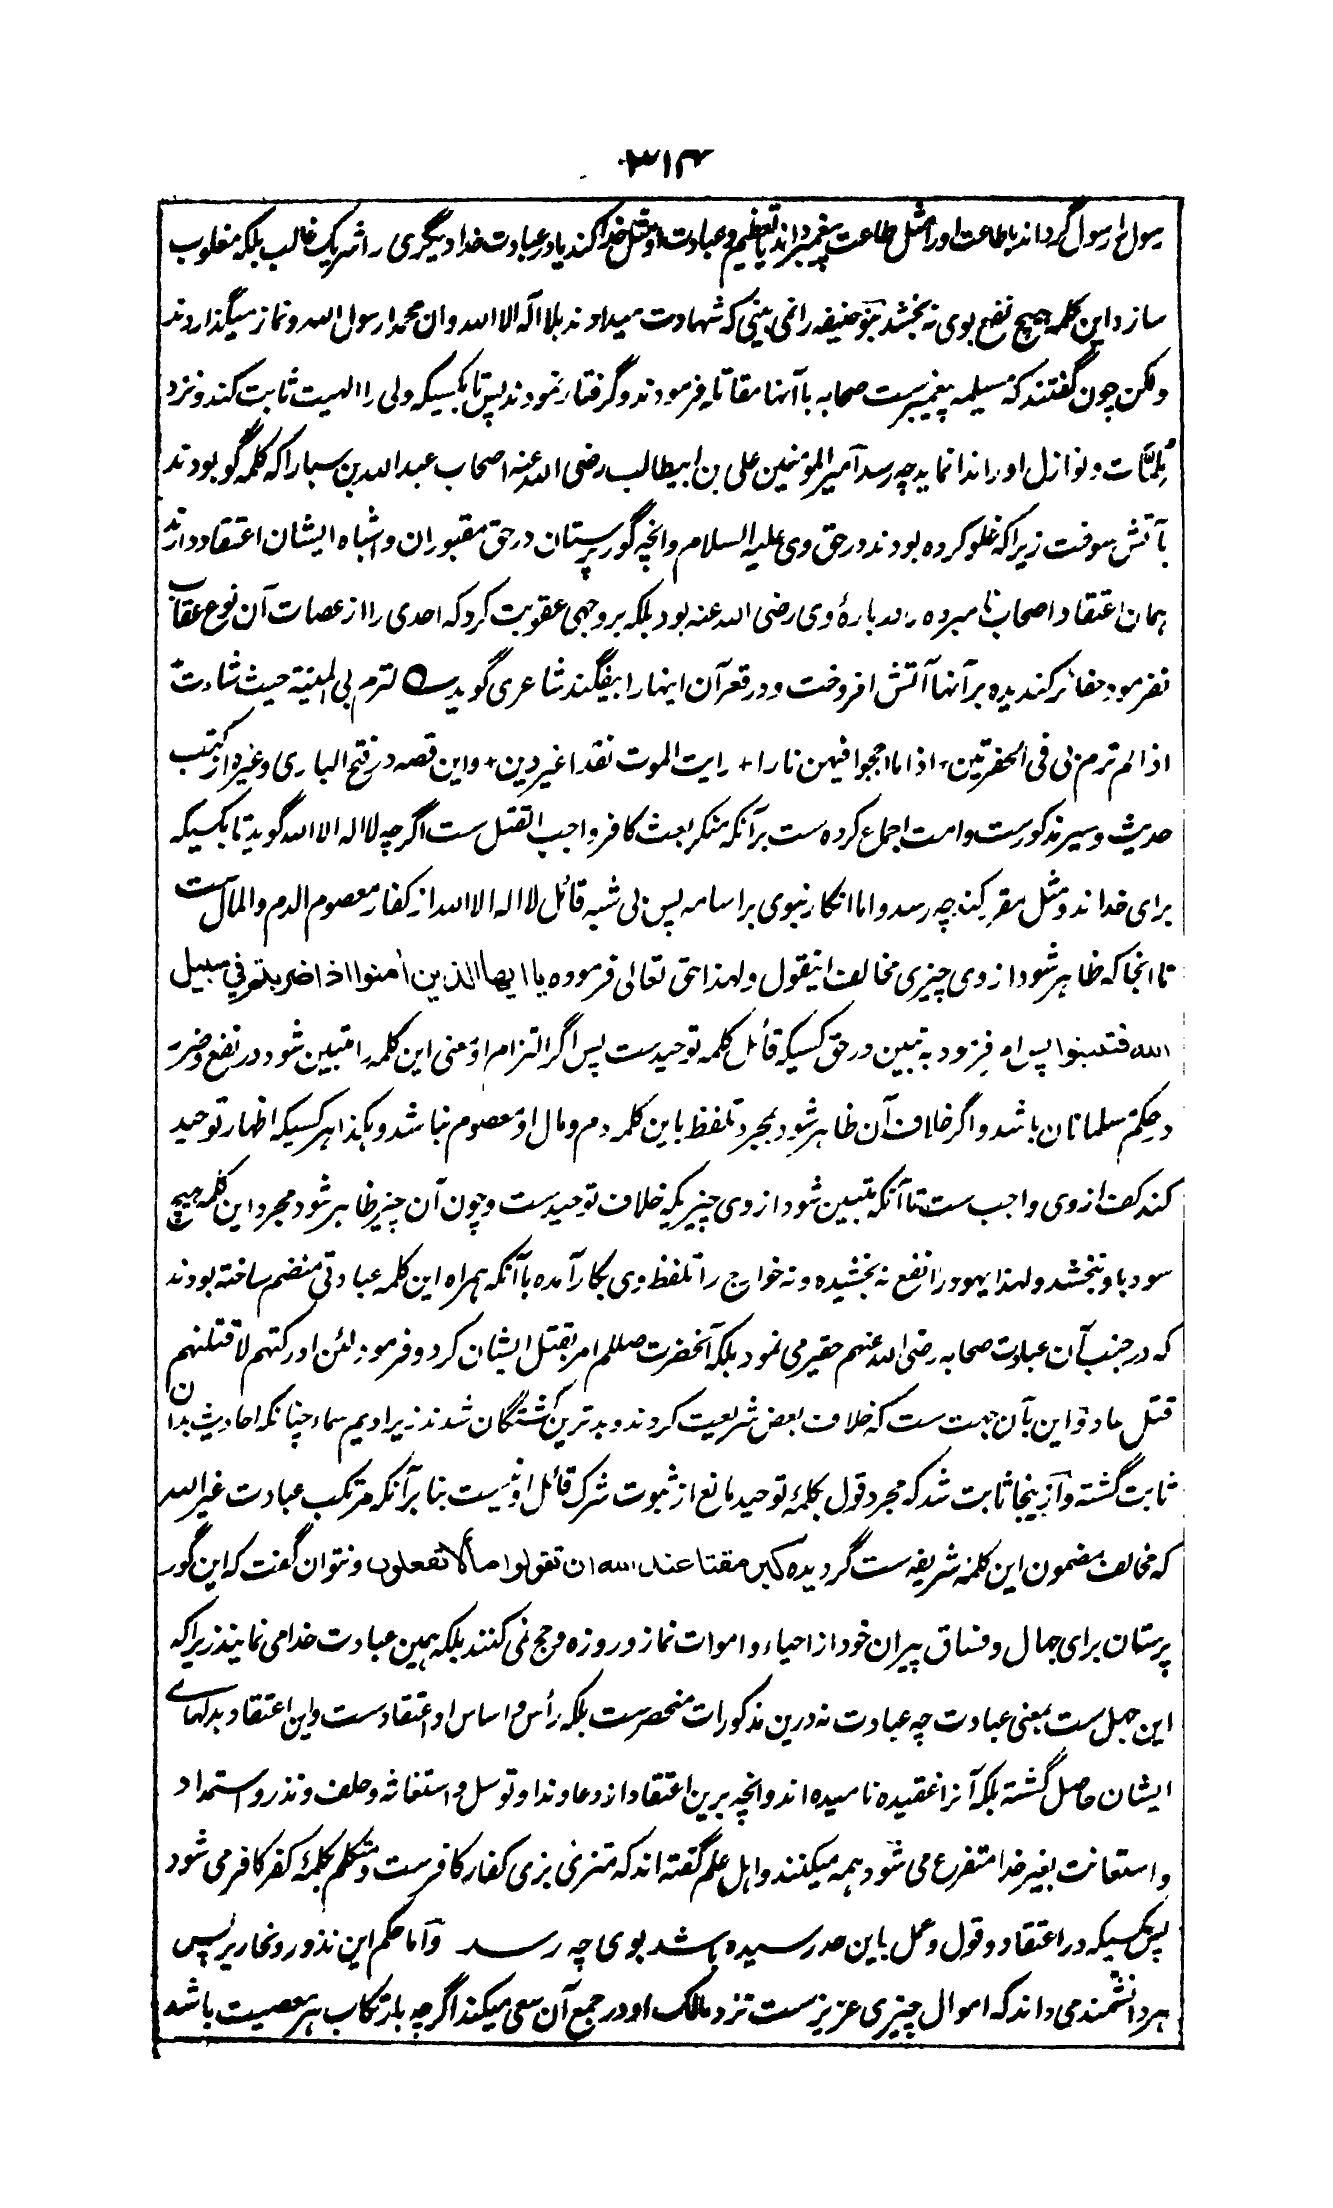 ۳۱۴
رسول را رسول گرداند یا طاعت او را مثل طاعت پیغمبر داند یا تعظیم و عبادت او مثل خدا کند یا در عبادت خدا دیگری را شریک غالب بلکه مغلوب
سازد این کلمه هیچ نفع بوی نه بخشد بنو حنیفه را نمی بینی که شهادت میدادند بلا اله الا الله و ان محمدا رسول الله و نماز میگذاردند
ولکن چون گفتند که مسیلمه پیغمبرست صحابه با آنها مقاتله فرمودند و گرفتار نمودند پس تا بکسیکه ولی را الهیت ثابت کند و نزد
ملمّات و نوازل او را ندا نماید چه رسد امیر المؤمنین علی بن ابیطالب رضی الله عنه اصحاب عبد الله بن سبا را که کلمه گو بودند
بآتش سوخت زیرا که غلو کرده بودند در حق وی علیه السلام و انچه گور پرستان در حق مقبوران و اشباه ایشان اعتقاد دارند
همان اعتقاد اصحاب نامبرده در بارۀ وی رضی الله عنه بود بلکه بر وجهی عقوبت کرد که احدی را از عصات آن نوع عقاب
نفرمود حفائر کندیده بر آنها آتش افروخت و در قعر آن اینها را بیفگند شاعری گوید لترم بی المنیة حیث شاءت
اذا لم ترم بی فی الحفرتین + اذا ما اججوا فیهن نارا + رایت الموت نقدا غیر دین + و این قصه در فتح الباری و غیره از کتب
حدیث و سیر مذکورست و امت اجماع کرده ست بر آنکه منکر بعث کافر واجب القتل ست اگرچه لا اله الا الله گوید تا بکسیکه
برای خدا ند و مثل مقرر کند چه رسد و اما انکار نبوی بر اسامه پس بی شبه قائل لا اله الا الله از کفار معصوم الدم و المال ست
تا انجا که ظاهر شود از وی چیزی مخالف اینقول و لهذا حق تعالی فرموده یا ایها الذین اٰمنوا اذا ضربتم فی سبیل
الله فتبینوا پس امر فرمود به تبین در حق کسیکه قائل کلمه توحیدست پس اگر التزام او معنی این کلمه را متبین شود در نفع و ضرر
در حکم مسلمانان باشد و اگر خلاف آن ظاهر شود بمجرد تلفظ باین کلمه دم و مال او معصوم نباشد و هکذا هر کسیکه اظهار توحید
کند کف از وی واجب ست تا آنکه متبین شود از وی چیزیکه خلاف توحیدست و چون آن چیز ظاهر شود مجرد این کلمه هیچ
سود باو نبخشد و لهذا یهود را نفع نه بخشیده و نه خوارج را تلفظ وی بکار آمده با آنکه همراه این کلمه عبادتی منضم ساخته بودند
که در جنب آن عبادت صحابه رضی الله عنهم حقیر می نمود بلکه آنحضرت صللم امر بقتل ایشان کرد و فرمود لئن ادرکتهم لاقتلنهم
قتل عاد و این بآن جهت ست که خلاف بعض شریعت کردند و بدترین کشتگان شدند زیر ادیم سماء چنانکه احادیث بدان
ثابت گشته و ازینجا ثابت شد که مجرد قول بکلمۀ توحید مانع از ثبوت شرک قائل او نیست بنا بر آنکه مرتکب عبادت غیر الله
که مخالف مضمون این کلمۀ شریفه ست گردیده کبر مقتا عند الله ان تقولوا ما لا تفعلون و نتوان گفت که این گور
پرستان برای جهال و فساق پیران خود از احیاء و اموات نماز و روزه و حج نمی کنند بلکه همین عبادت خدا می نمایند زیرا که
این جهل ست بمعنی عبادت چه عبادت نه درین مذکورات منحصرست بلکه رأس و اساس او اعتقادست و این اعتقاد بدلهای
ایشان حاصل گشته بلکه آنرا عقیده نامیده اند و انچه برین اعتقاد از دعا و ندا و توسل و استغاثه و حلف و نذر و استمداد
و استعانت بغیر خدا متفرع می شود همه میکنند و اهل علم گفته اند که متزی بزی کفار کافرست و متکلم بکلمۀ کفر کافر می شود
پس کسیکه در اعتقاد و قول و عمل باین حد رسیده باشد بوی چه رسد و اما حکم این نذور و نحاریر پس
هر دانشمند می داند که اموال چیزی عزیزست نزد مالک او در جمع آن سعی میکند اگرچه بارتکاب هر معصیت باشد